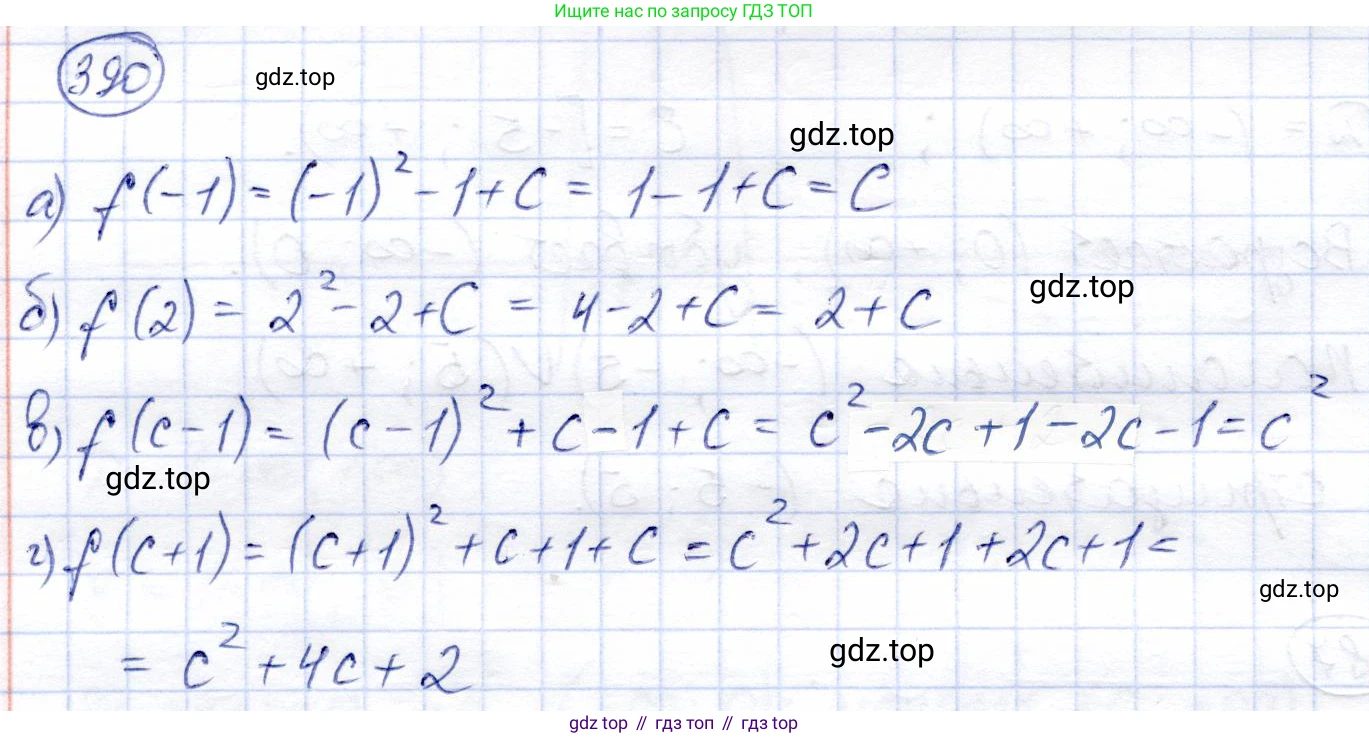 Ищите нас по запросу ГДЗ ТОП
390 gdz.top
gdz.top
а) f(-1) = (-1)² - 1 + C = 1 - 1 + C = C
gdz.top
б) f(2) = 2² - 2 + C = 4 - 2 + C = 2 + C
в) f(c-1) = (c-1)² + c - 1 + c = c² - 2c + 1 - 2c - 1 = c²
gdz.top
г) f(c+1) = (c+1)² + c + 1 + c = c² + 2c + 1 + 2c + 1 =
gdz.top
= c² + 4c + 2
gdz.top
gdz top // гдз топ // gdz top